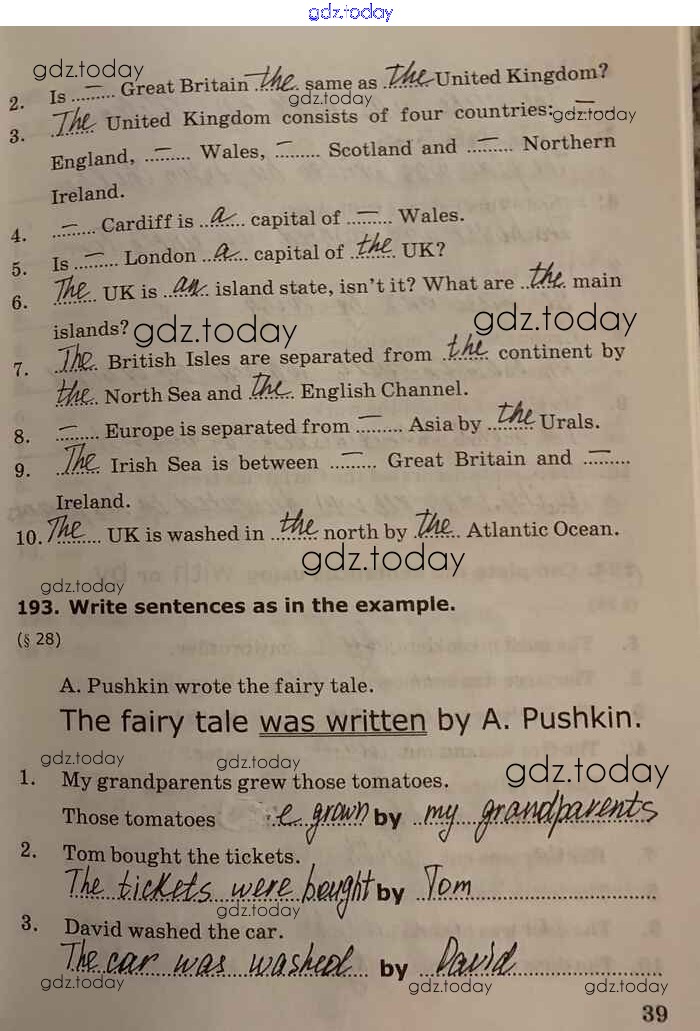 gdz.today
gdz.today
2. Is ...–... Great Britain the same as the United Kingdom?
gdz.today
3. The United Kingdom consists of four countries: –
gdz.today
England, ...–... Wales, ...–... Scotland and ...–... Northern
Ireland.
4. ...–... Cardiff is ...a... capital of ...–... Wales.
5. Is ...–... London ...a... capital of the UK?
6. The UK is ...an... island state, isn't it? What are the main
islands? gdz.today
gdz.today
7. The British Isles are separated from the continent by
the North Sea and The English Channel.
8. ...–... Europe is separated from ...–... Asia by the Urals.
9. The Irish Sea is between ...–... Great Britain and ...–...
Ireland.
10. The UK is washed in the north by the Atlantic Ocean.
gdz.today
gdz.today
193. Write sentences as in the example.
(§ 28)
A. Pushkin wrote the fairy tale.
The fairy tale was written by A. Pushkin.
gdz.today
gdz.today
gdz.today
1. My grandparents grew those tomatoes.
Those tomatoes e grown by my grandparents
2. Tom bought the tickets.
The tickets were bought by Tom
gdz.today
3. David washed the car.
The car was washed by David
gdz.today
gdz.today
gdz.today
39